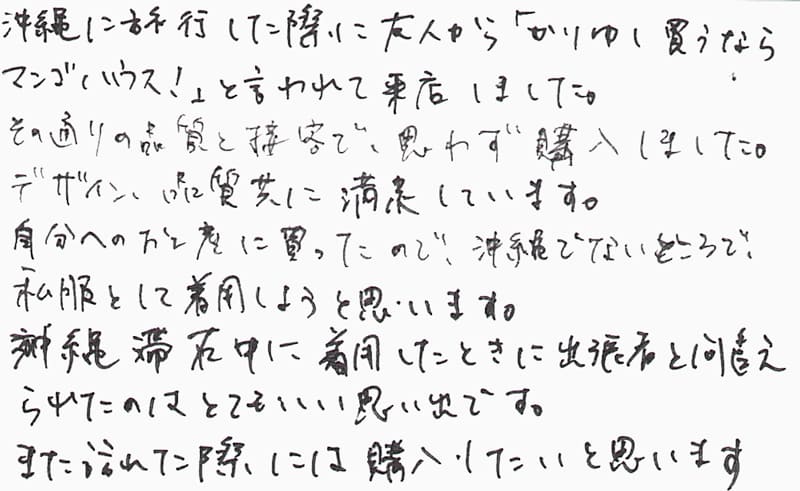 沖縄に旅行した際に友人から「かりゆし買うなら
マンゴハウス！」と言われて来店しました。
その通りの品質と接客で、思わず購入しました。
デザイン、品質共に満足しています。
自分へのお土産に買ったので、沖縄でないところで、
私服として着用しようと思います。
沖縄滞在中に着用したときに出張者と間違え
られたのはとてもいい思い出です。
また訪れた際には購入したいと思います